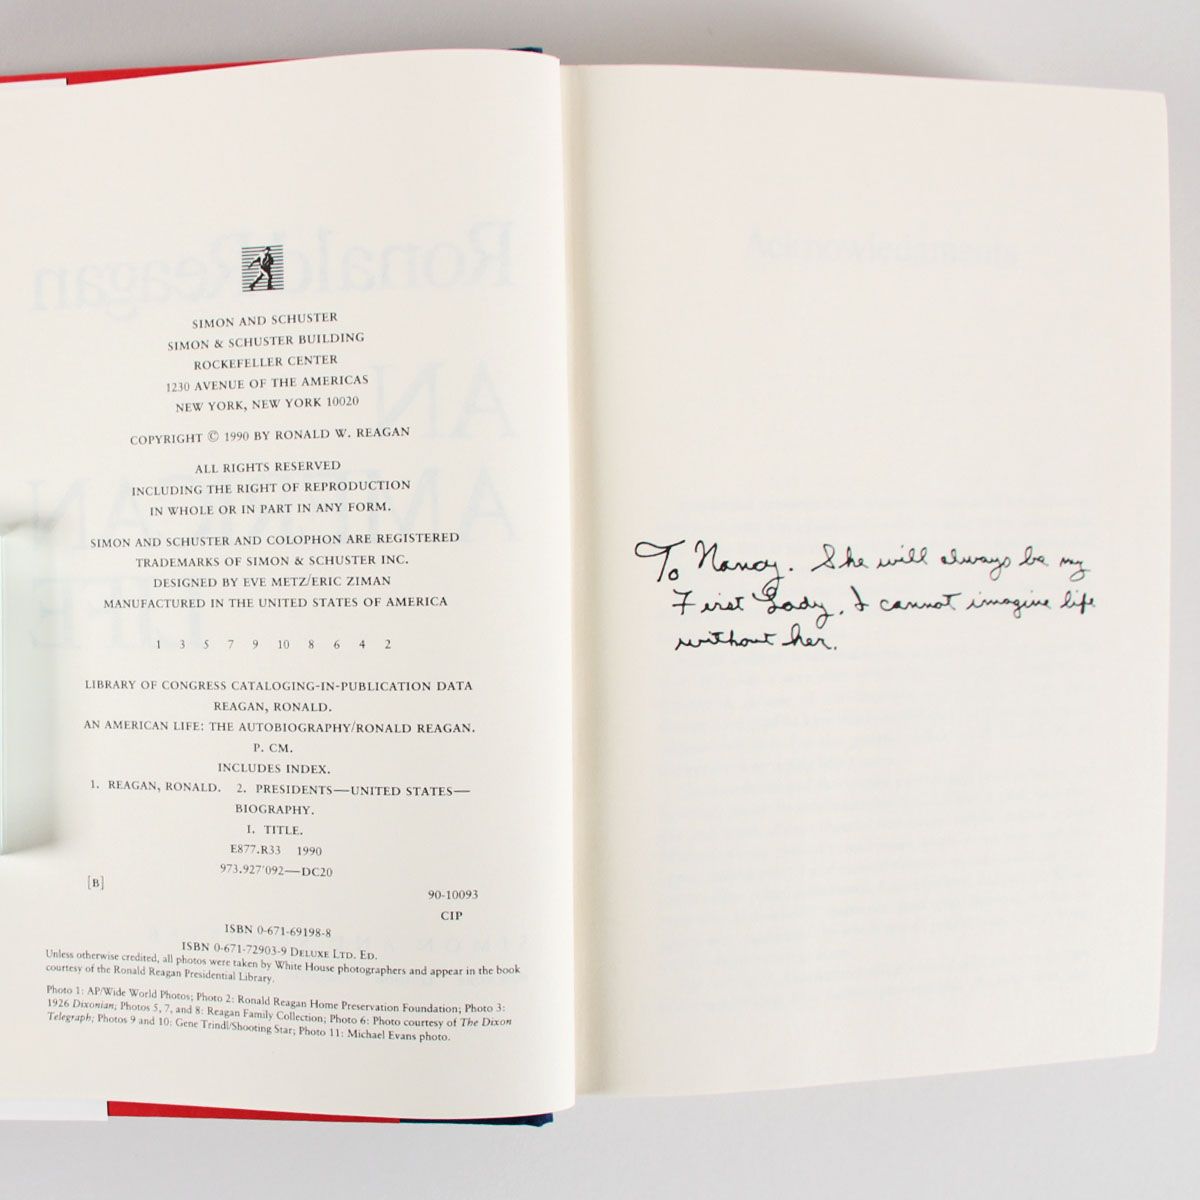 SIMON AND SCHUSTER
SIMON & SCHUSTER BUILDING
ROCKEFELLER CENTER
1230 AVENUE OF THE AMERICAS
NEW YORK, NEW YORK 10020
COPYRIGHT © 1990 BY RONALD W. REAGAN
ALL RIGHTS RESERVED
INCLUDING THE RIGHT OF REPRODUCTION
IN WHOLE OR IN PART IN ANY FORM.
SIMON AND SCHUSTER AND COLOPHON ARE REGISTERED
TRADEMARKS OF SIMON & SCHUSTER INC.
DESIGNED BY EVE METZ/ERIC ZIMAN
MANUFACTURED IN THE UNITED STATES OF AMERICA
1 3 5 7 9 10 8 6 4 2
LIBRARY OF CONGRESS CATALOGING-IN-PUBLICATION DATA
REAGAN, RONALD.
AN AMERICAN LIFE: THE AUTOBIOGRAPHY/RONALD REAGAN.
P. CM.
INCLUDES INDEX.
1. REAGAN, RONALD. 2. PRESIDENTS—UNITED STATES—
BIOGRAPHY.
I. TITLE.
E877.R33 1990
973.927'092—DC20
[B]
90-10093
CIP
ISBN 0-671-69198-8
ISBN 0-671-72903-9 DELUXE LTD. ED.
Unless otherwise credited, all photos were taken by White House photographers and appear in the book
courtesy of the Ronald Reagan Presidential Library.
Photo 1: AP/Wide World Photos; Photo 2: Ronald Reagan Home Preservation Foundation; Photo 3:
1926 Dixonian; Photos 5, 7, and 8: Reagan Family Collection; Photo 6: Photo courtesy of The Dixon
Telegraph; Photos 9 and 10: Gene Trindl/Shooting Star; Photo 11: Michael Evans photo.
To Nancy. She will always be my
First Lady. I cannot imagine life
without her.
Acknowledgments
Ronald Reagan
AN
AMERICAN
LIFE